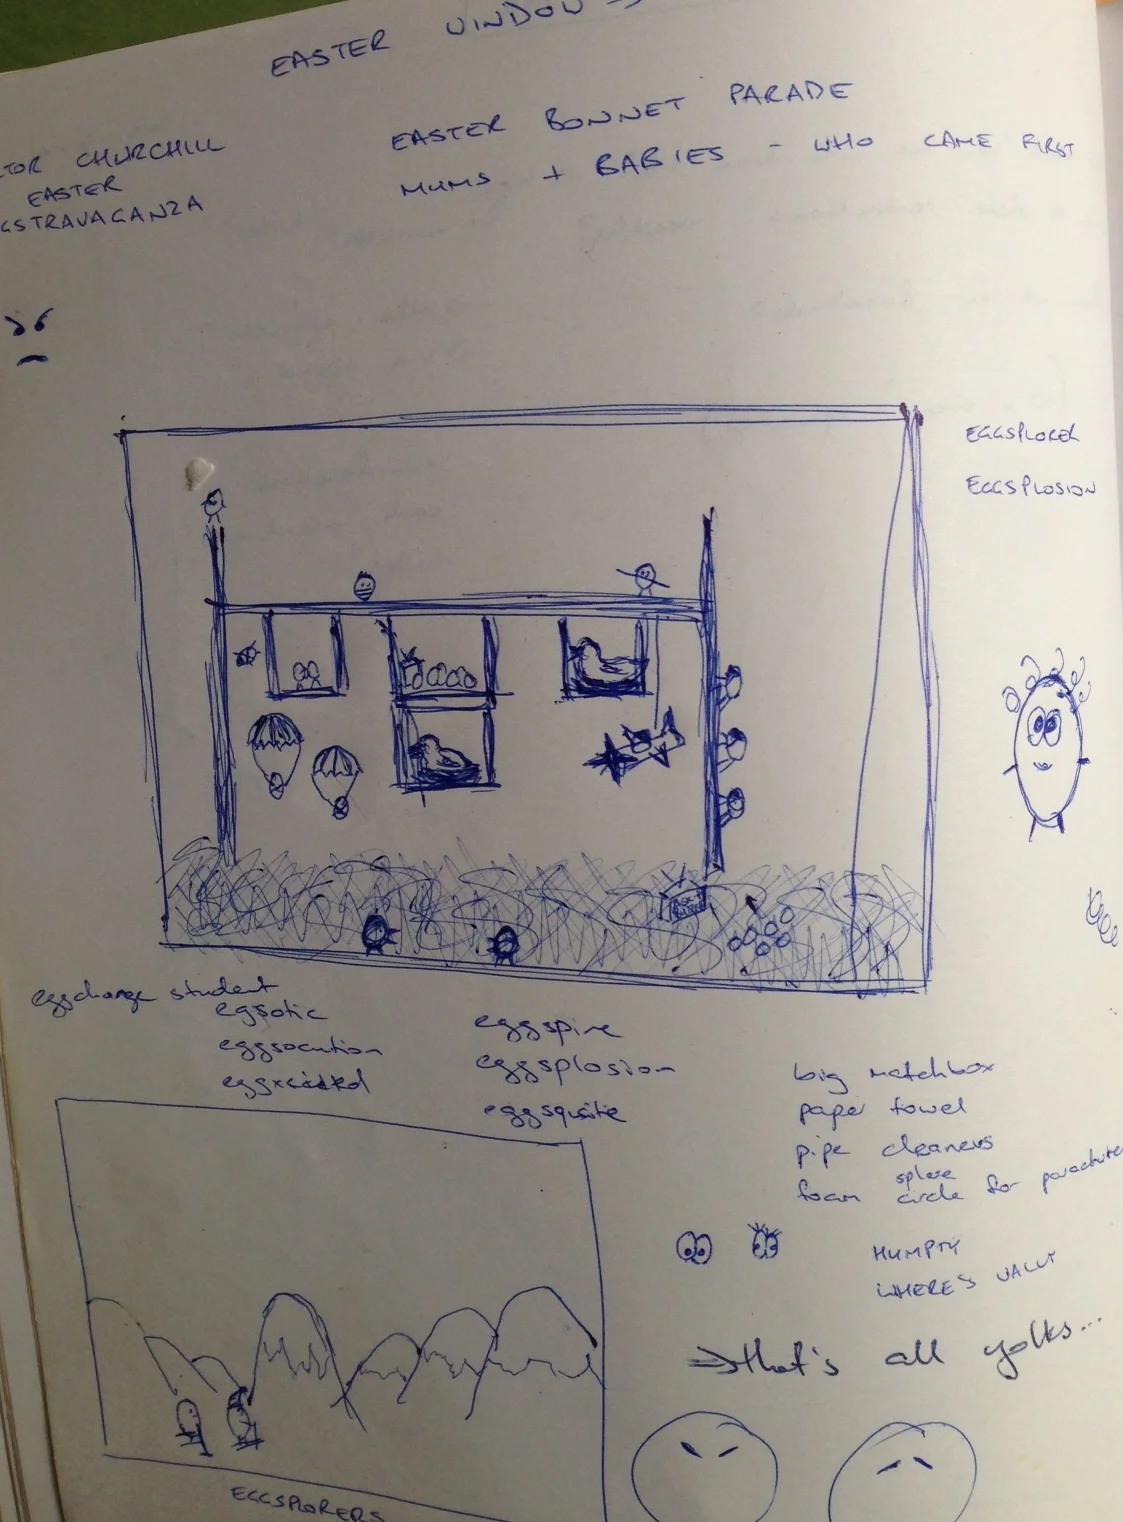 EASTER WINDOW →
TOR CHURCHILL
EASTER
GSTRAVAGANZA
EASTER BONNET PARADE
MUMS + BABIES - WHO CAME FIRST
EGGSPLORER
EGGSPLOSION
eggchange student
egsotic
eggsocution
eggxcited
eggspire
eggsplosion
eggsquite
big matchbox
paper towel
pipe cleaners
foam circle for parachute
HUMPTY
WHERE'S WALLY
⇒ that's all yolks...
EGGSPLORERS